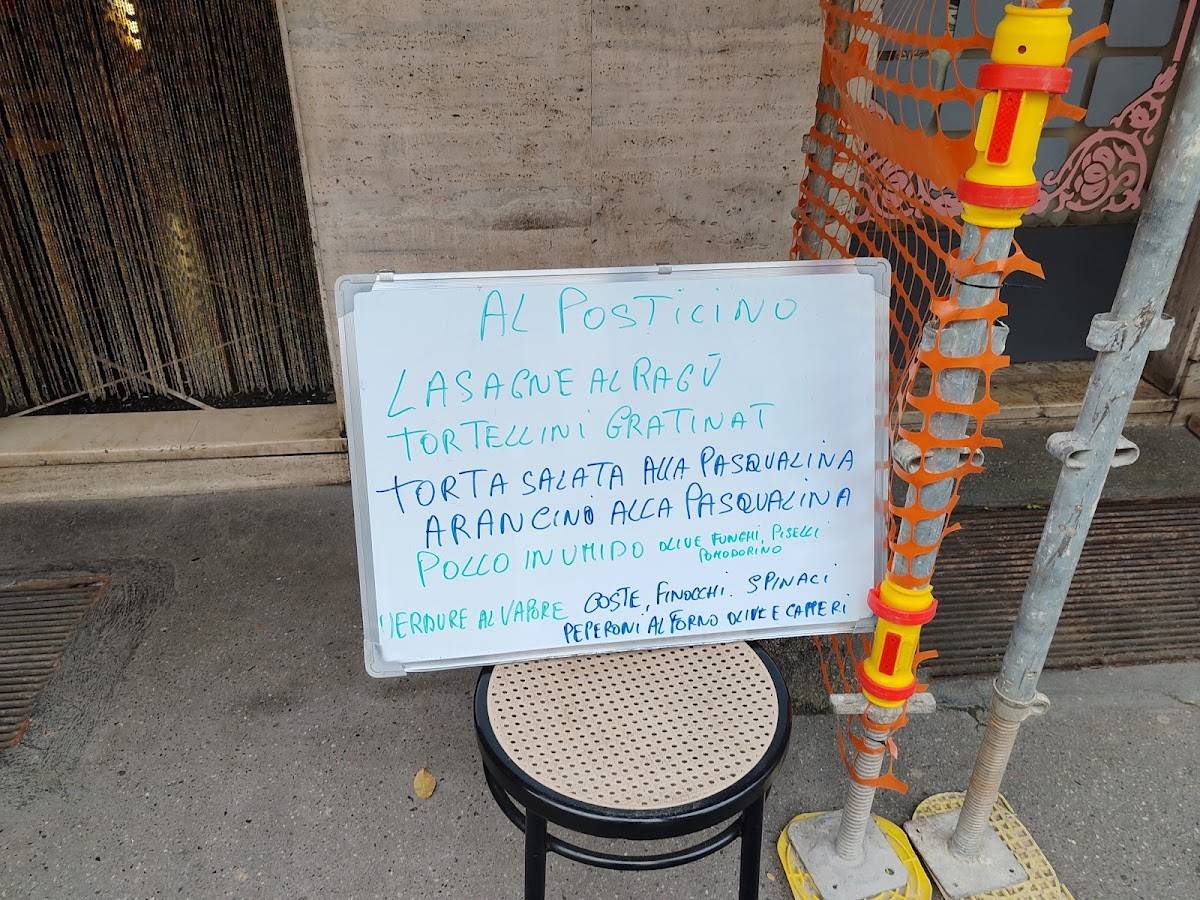 AL POSTICINO
LASAGNE AL RAGÙ
TORTELLINI GRATINAT
TORTA SALATA ALLA PASQUALINA
ARANCINO ALLA PASQUALINA
POLLO IN UMIDO OLIVE FUNGHI, PISELLI
POMODORINO
VERDURE AL VAPORE COSTE, FINOCCHI. SPINACI
PEPERONI AL FORNO OLIVE E CAPPERI